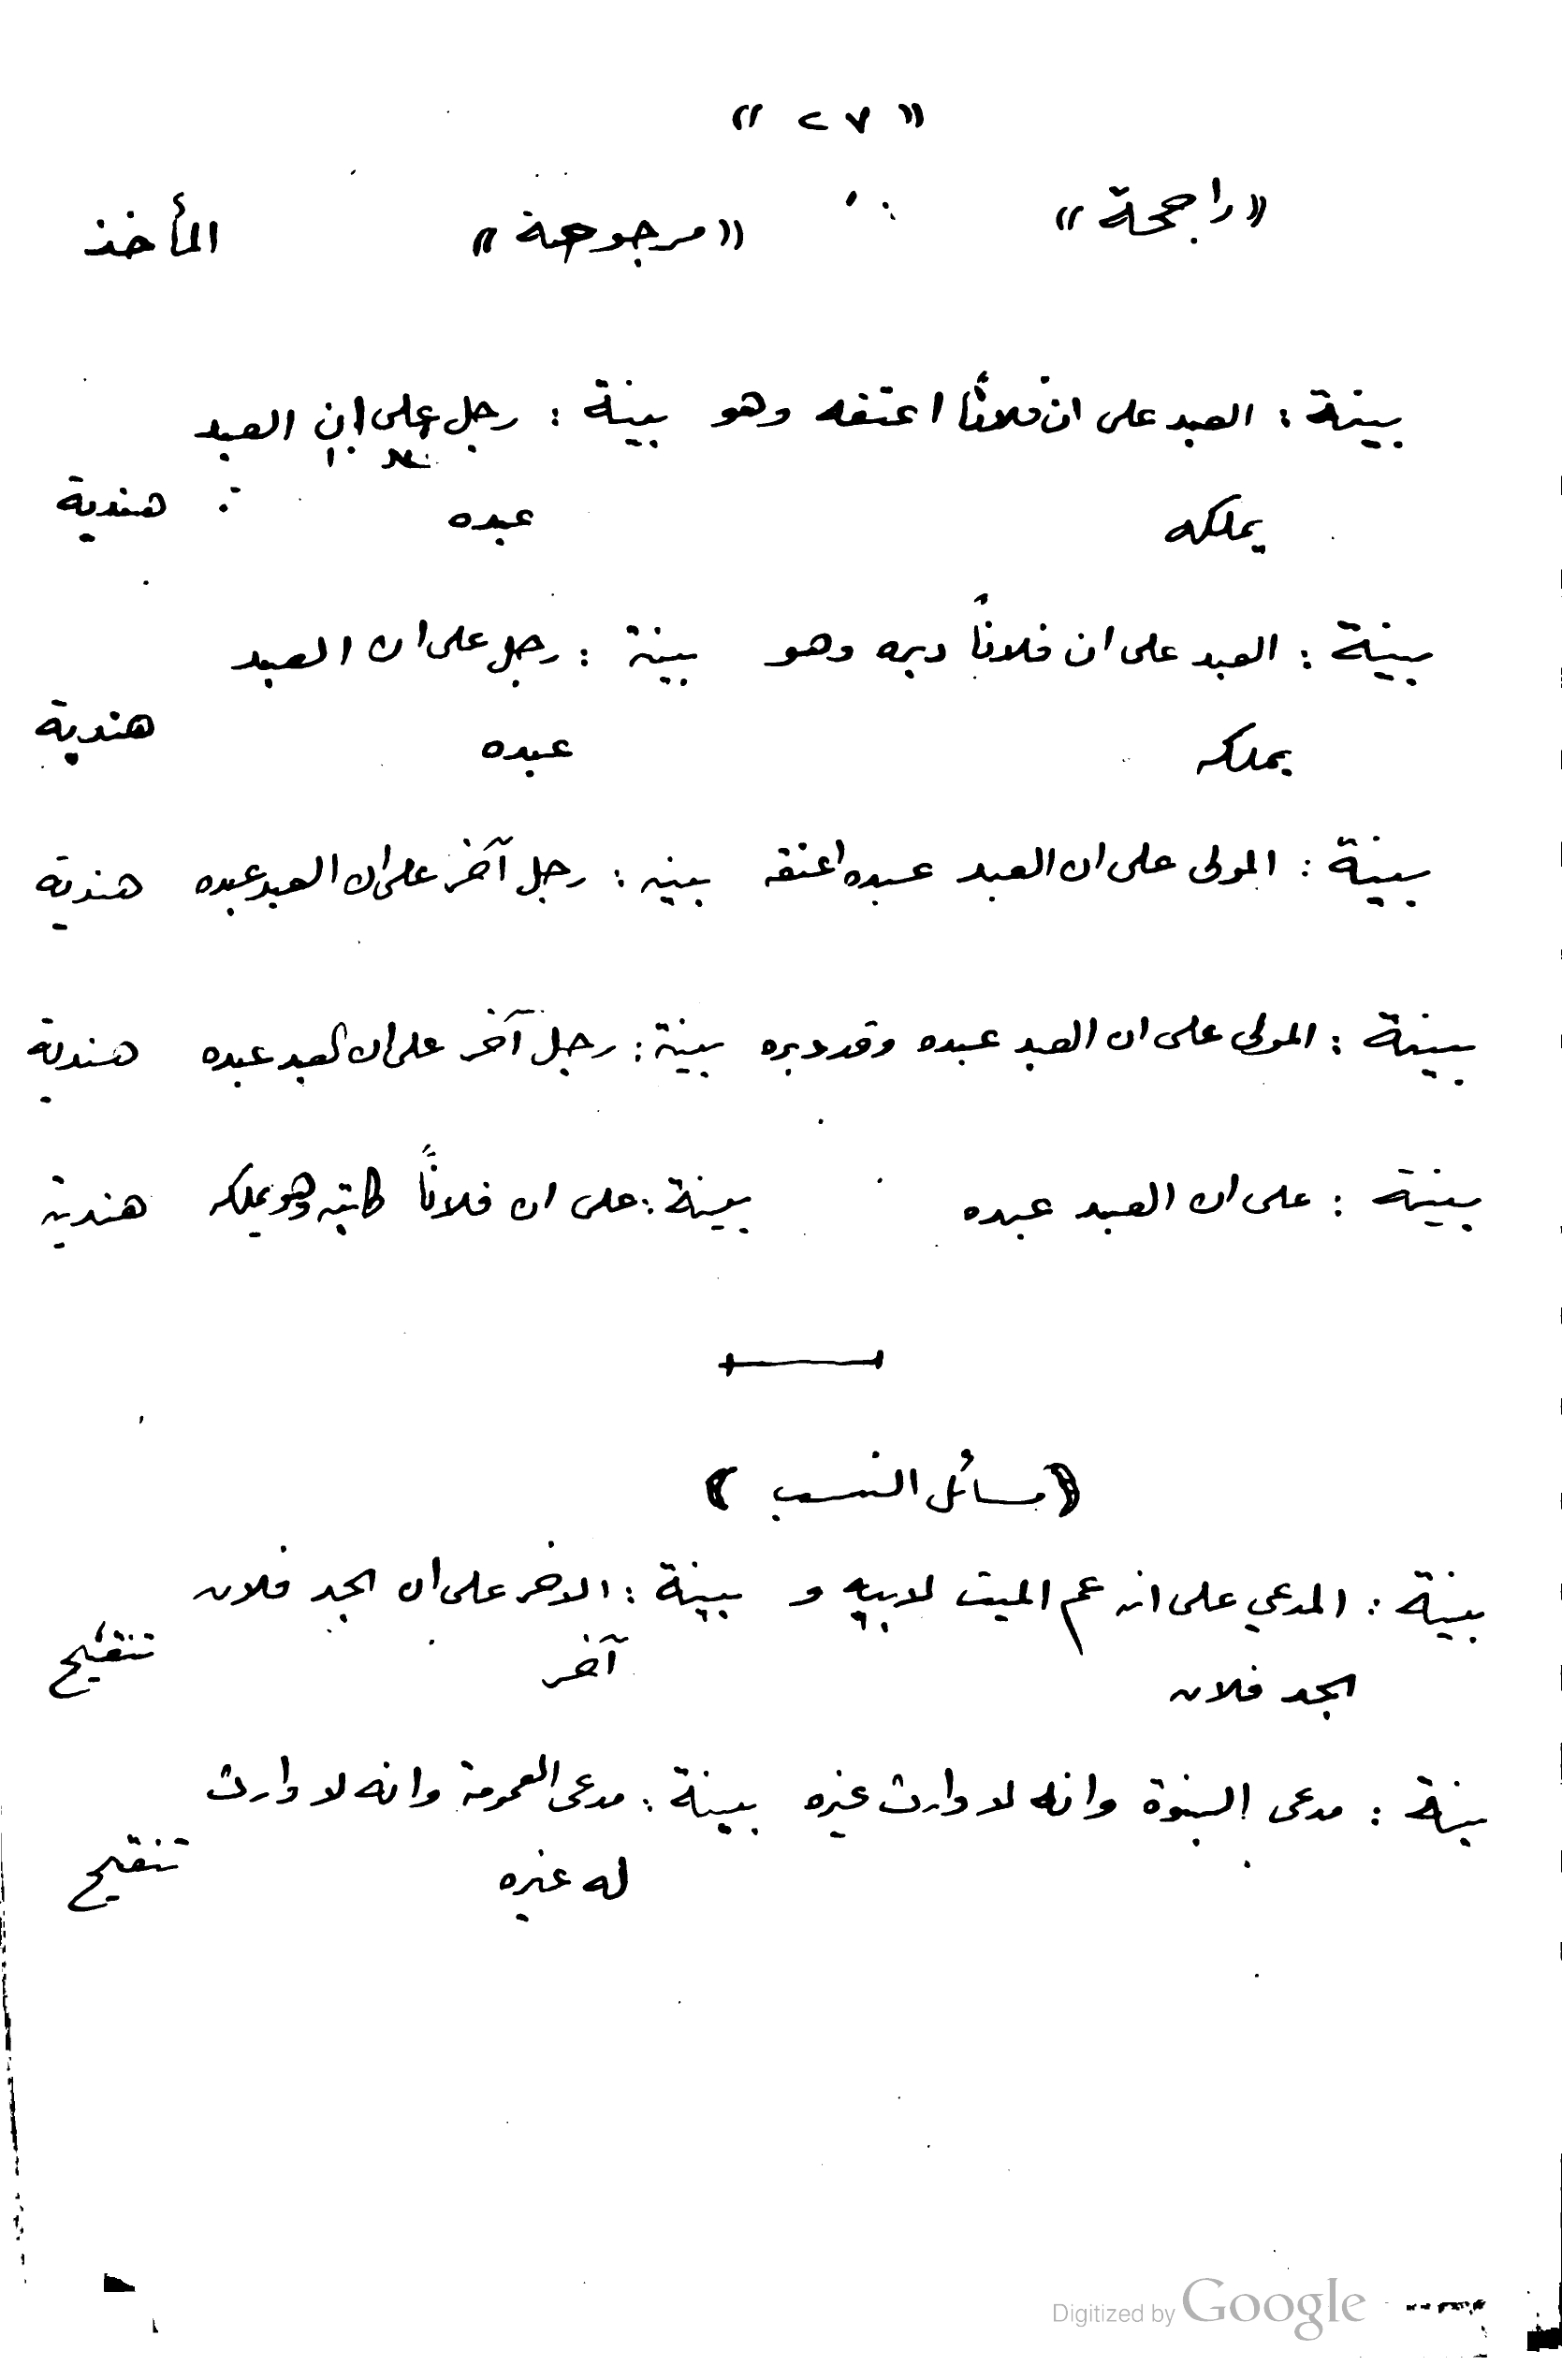 « ٢٧ »
«راجحة» «مرجوحة» المأخذ
بينة : العبد على ان فلاناً اعتقه وهو بينة : رجل على ان العبد
يملكه عبده هندية
بينة : العبد على ان فلاناً دبره وهو بينة : رجل على ان العبد
يملكه عبده هندية
بينة : المولى على ان العبد عبده اعتقه بينة : رجل آخر على ان العبد عبده هندية
بينة : المولى على ان العبد عبده وقد دبره بينة : رجل آخر على ان العبد عبده هندية
بينة : على ان العبد عبده بينة : على ان فلاناً كاتبه وهو يملكه هندية
(مسائل النسب)
بينة : المدعي على انه عم الميت لابيه و بينة : الاخر على ان الجد فلان
الجد فلان آخر تنقيح
بينة : مدعى البنوة وانه لا وارث غيره بينة : مدعى العمومة وانه لا وارث
له غيره تنقيح
Digitized by Google